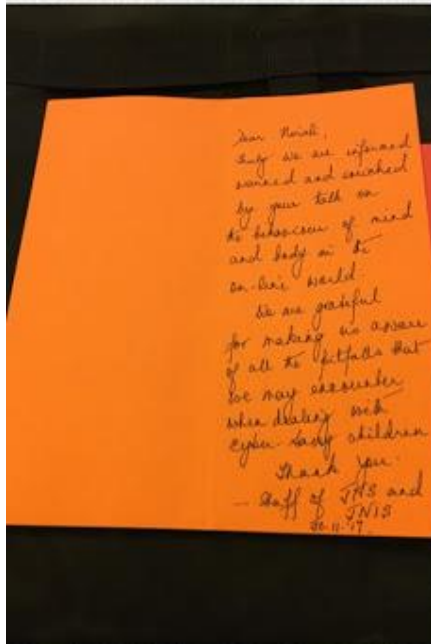 Dear Nirali,
Truly we are informed
warned and enriched
by your talk on
the behaviour of mind
and body in the
on-line world
We are grateful
for making us aware
of all the pitfalls that
we may encounter
when dealing with
cyber-savvy children
Thank you.
— Staff of JNS and
JNIS
30.11.'17